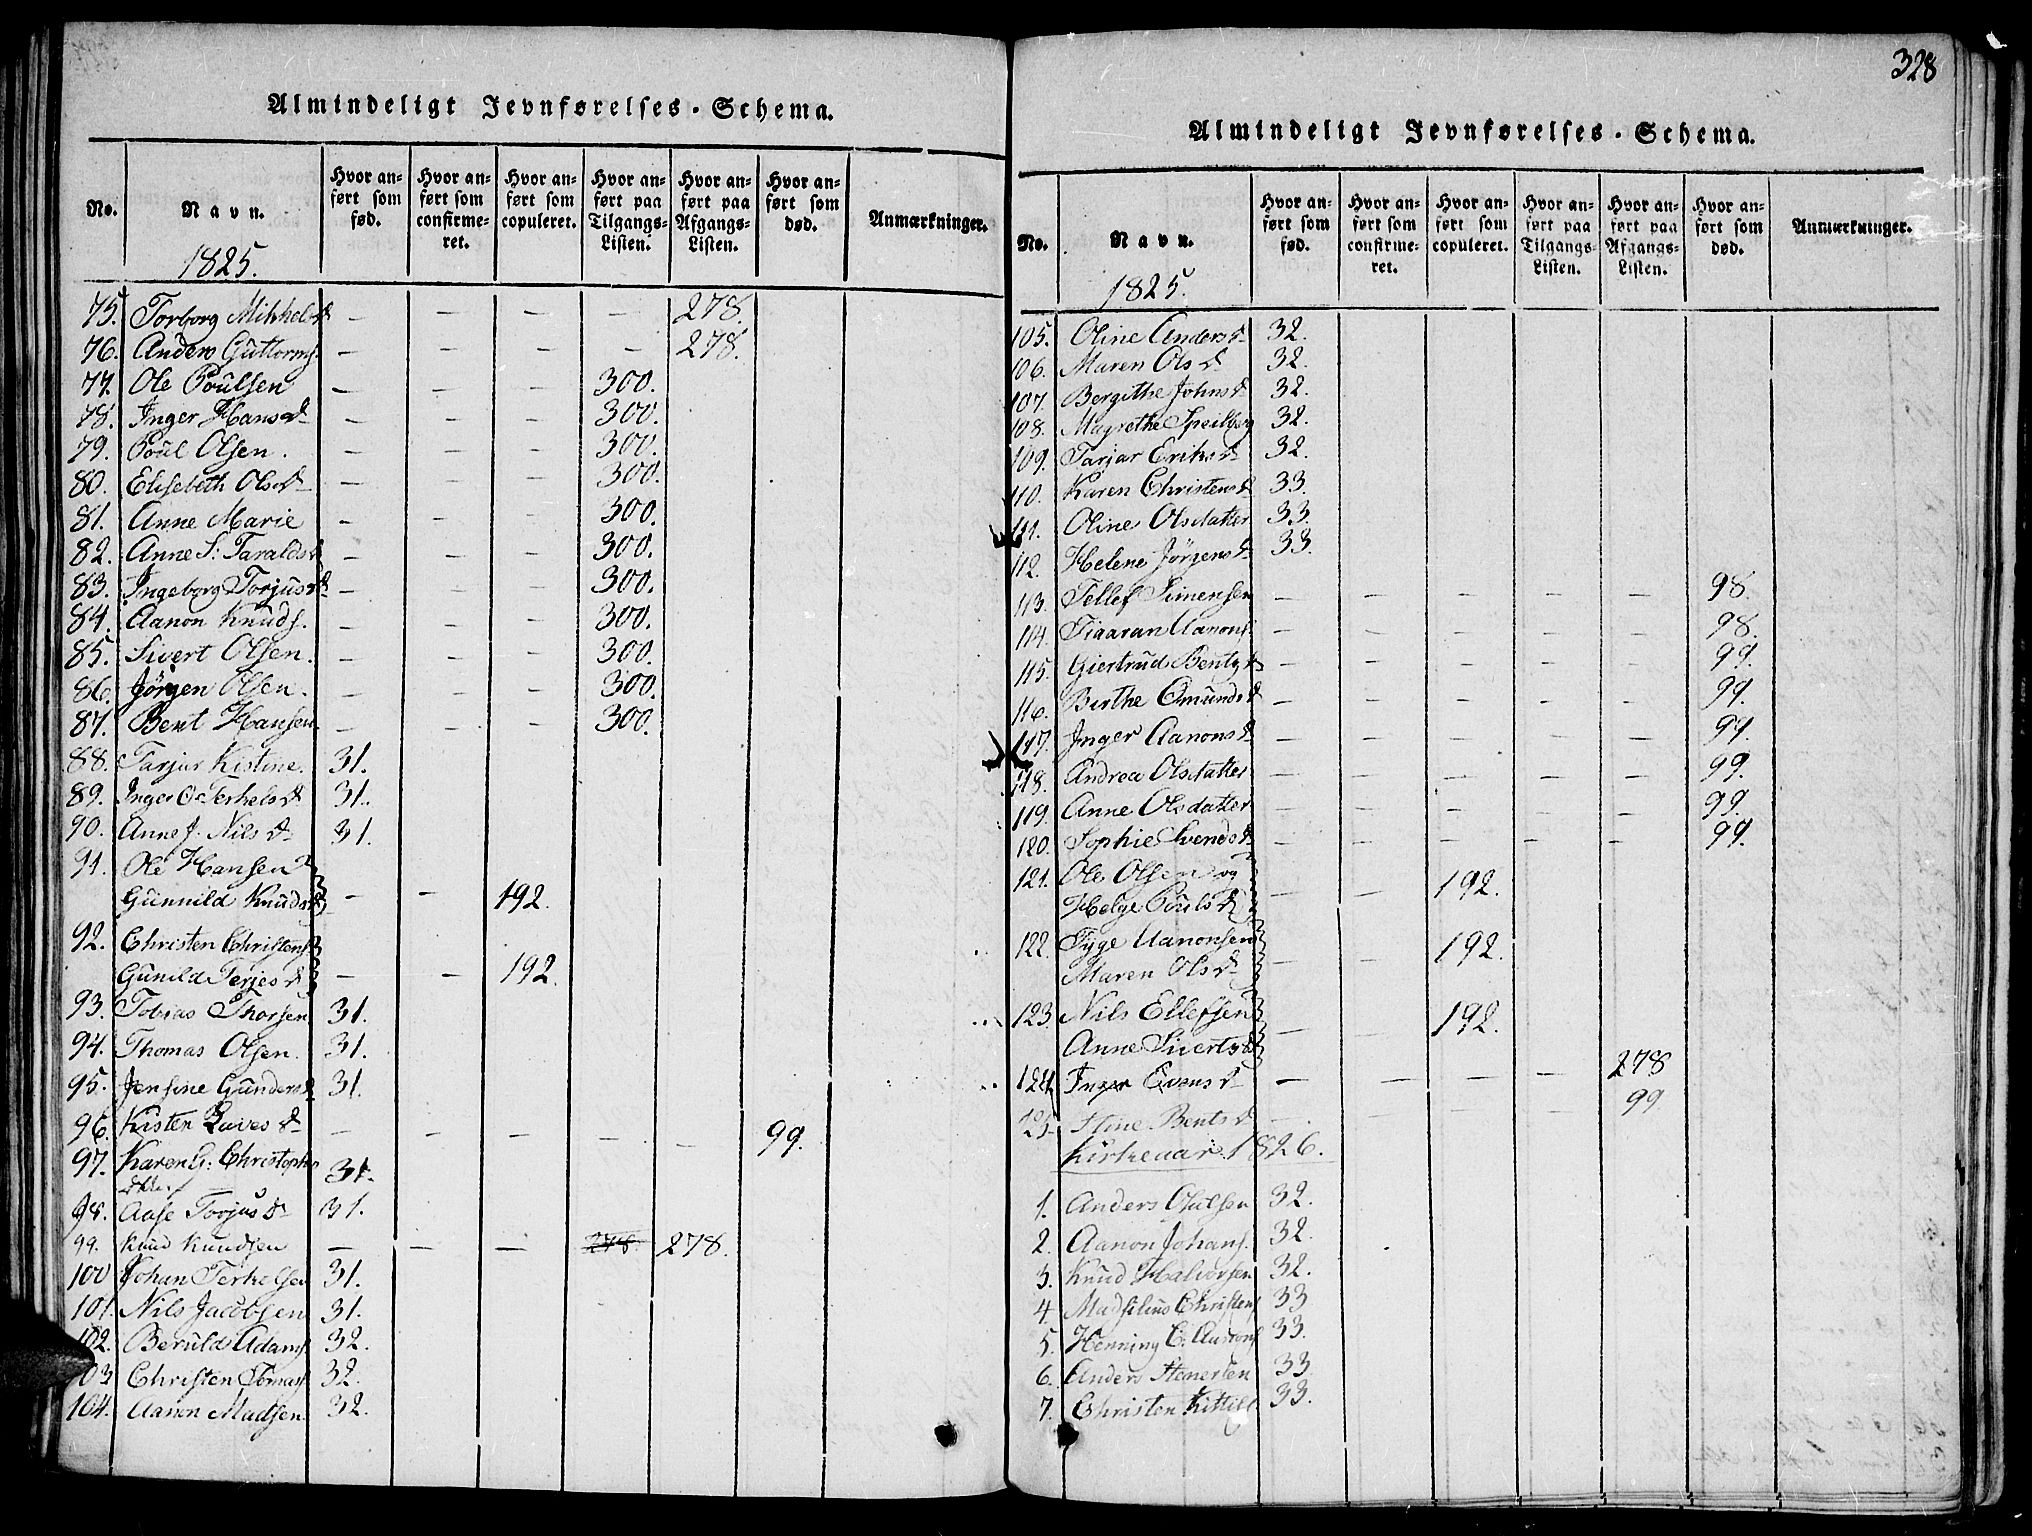 328
Almindeligt Jevnførelses-Schema.
No. Navn. Hvor anført som fød. Hvor anført som confirmeret. Hvor anført som copuleret. Hvor anført paa Tilgangs-Listen. Hvor anført paa Afgangs-Listen. Hvor anført som død. Anmærkninger.
1825.
75. Torborg Mikkelsd – – – – 278.
76. Anders Guttorms. – – – – 278.
77. Ole Poulsen – – – 300.
78. Inger Hansd – – – 300.
79. Poul Olsen. – – – 300.
80. Elisebeth Olsd – – – 300.
81. Anne Marie – – – 300.
82. Anne S: Taraldsd – – – 300.
83. Ingeborg Torjusd – – – 300.
84. Aanon Knuds. – – – 300.
85. Sivert Olsen. – – – 300.
86. Jørgen Olsen. – – – 300.
87. Bent Hansen – – – 300.
88. Tarjer Kistine. 31.
89. Inger O: Terkelsd 31.
90. Anne J. Nilsd 31.
91. Ole Hansen
Gunnild Knudsd – – 192.
92. Christen Christens.
Gunild Terjesd – – 192.
93. Tobias Thorsen 31.
94. Thomas Olsen. 31.
95. Jensine Gundersd 31.
96. Kisten d – – – – – 99.
97. Karen G: Christophers 31.
98. Aase Torjusd 31.
99. Knud Knudsen – – – 278. 278.
100 Johan Terkelsen 31.
101. Nils Jacobsen 31.
102. Beruld Adams. 32.
103 Christen Tomas. 32.
104. Aanon Madsen 32.
Almindeligt Jevnførelses-Schema.
No. Navn. Hvor anført som fød. Hvor anført som confirmeret. Hvor anført som copuleret. Hvor anført paa Tilgangs-Listen. Hvor anført paa Afgangs-Listen. Hvor anført som død. Anmærkninger.
1825.
105. Oline Andersd 32.
106. Maren Olsd 32.
107. Bergithe Johnsd 32.
108. Magrethe Speilberg 32.
109. Tarjer Eriksd 32.
110. Karen Christensd 33.
111. Oline Olsdatter 33.
112. Helene Jørgensd 33.
113. Tellef Simensen – – – – – 98.
114. Aanons. – – – – – 98.
115. Giertrud Bentsd – – – – – 99.
116. Birthe Omundsd – – – – – 99.
117. Inger Aanonsd – – – – – 99.
118. Andrea Olsdatter – – – – – 99.
119. Anne Olsdatter – – – – – 99.
120. Sophie Svendsd – – – – – 99.
121. Ole Olsen og
Helge Poulsd – – 192.
122. Tyge Aanonsen
Maren Olsd – – 192.
123. Nils Ellefsen
Anne Sivertsd – – 192.
124. Inger Evensd – – – – 278
125 Stine Bentsd – – – – 99
Kirkeaar 1826.
1. Anders Osulsen 32.
2. Aanon Johans. 32.
3. Knud Halvorsen 32.
4 Madselius Christens 33
5. Henning C. Aanons 33.
6. Anders Stenersen 33
7. Christen Kittils 33.